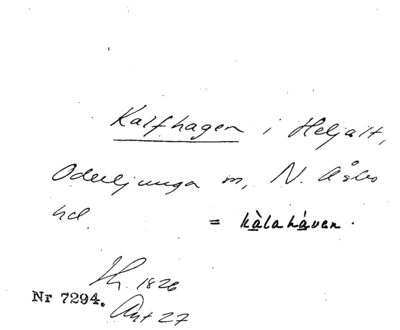 Kalfhagen i Heljalt,
Oderljunga sn, N. Åsbo
hd. = kàlahávan.
1826
Nr 7294.
27